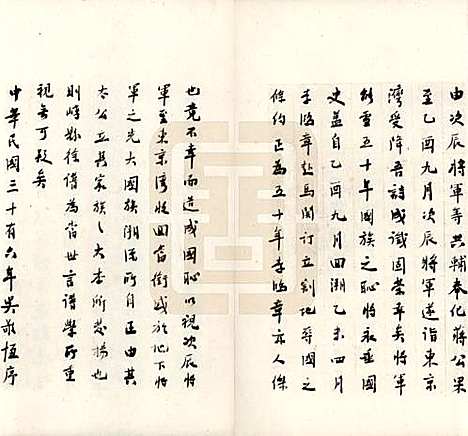 由次辰將軍等共輔奉化蔣公果
至乙酉九月次辰將軍遂詣東京
灣受降吾詩成讖國榮幸矣將軍
能雪五十年國族之恥將永垂國
史蓋自乙酉九月四溯乙未四月
李鴻章赴馬關訂立割地辱國之
條約正為五十年李鴻章亦人傑
也竟不幸而造成國恥以視次辰將
軍至東京灣收回當銜感於地下將
軍之先大國族湘流所自正由其
太公立為家族之大本所啟揚也
則嶧縣徐譜為當世言譜學所重
視無可疑矣
中華民國三十有六年吳敬恆序